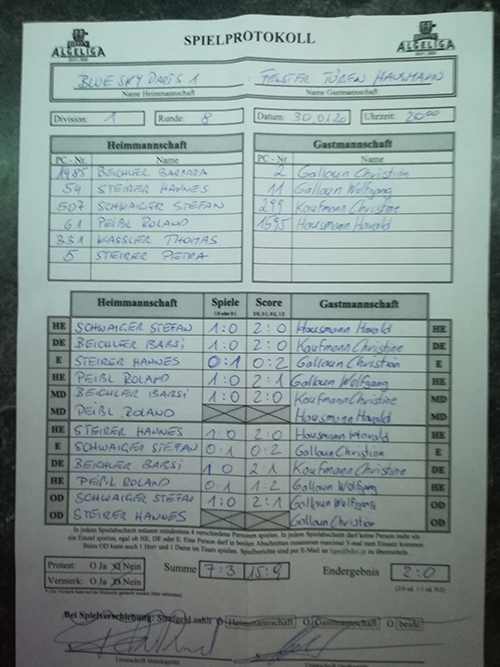 ALGELIGA SPIELPROTOKOLL ALGELIGA
BLUE SKY DARTS 1 : FENSTER TÜREN HAUSMANN
Name Heimmannschaft Name Gastmannschaft
Division: 1 Runde: 8 Datum: 30.01.20 Uhrzeit: 20:00
Heimmannschaft Gastmannschaft
PC - Nr. Name PC - Nr. Name
1485 BEICHLER BARBARA 2 Gallaun Christian
54 STEIRER HANNES 11 Gallaun Wolfgang
507 SCHWAIGER STEFAN 299 Kaufmann Christine
61 PEIBL ROLAND 1595 Hausmann Harald
331 KASSLER THOMAS
5 STEIRER PETRA
Heimmannschaft Spiele Score Gastmannschaft
HE SCHWAIGER STEFAN 1:0 2:0 Hausmann Harald HE
DE BEICHLER BABSI 1:0 2:0 Kaufmann Christine DE
E STEIRER HANNES 0:1 0:2 Gallaun Christian E
HE PEIBL ROLAND 1:0 2:1 Gallaun Wolfgang HE
MD BEICHLER BABSI 1:0 2:0 Kaufmann Christine MD
MD PEIBL ROLAND Hausmann Harald MD
HE STEIRER HANNES 1:0 2:0 Hausmann Harald HE
E SCHWAIGER STEFAN 0:1 0:2 Gallaun Christian E
DE BEICHLER BABSI 1 0 2:1 Kaufmann Christine DE
HE PEIBL ROLAND 0:1 1:2 Gallaun Wolfgang HE
OD SCHWAIGER STEFAN 1:0 2:1 Gallaun Wolfgang OD
OD STEIRER HANNES Gallaun Christian OD
In jedem Spielabschnitt müssen mindestens 4 verschiedene Personen spielen. In jedem Spielabschnitt darf keine Person mehr als
ein Einzel spielen, egal ob HE, DE oder E. Eine Person darf in beiden Abschnitten zusammen maximal 3-mal zum Einsatz kommen.
Beim OD kann auch 1 Herr und 1 Dame im Team spielen. Spielberichte sind per E-Mail an zu übermitteln.
Protest: O Ja O Nein Summe 7:3 15:9 Endergebnis 2:0
Vermerk: O Ja O Nein
Bei Spielverschiebung: Startgeld zahlt O Heimmannschaft O Gastmannschaft O beide